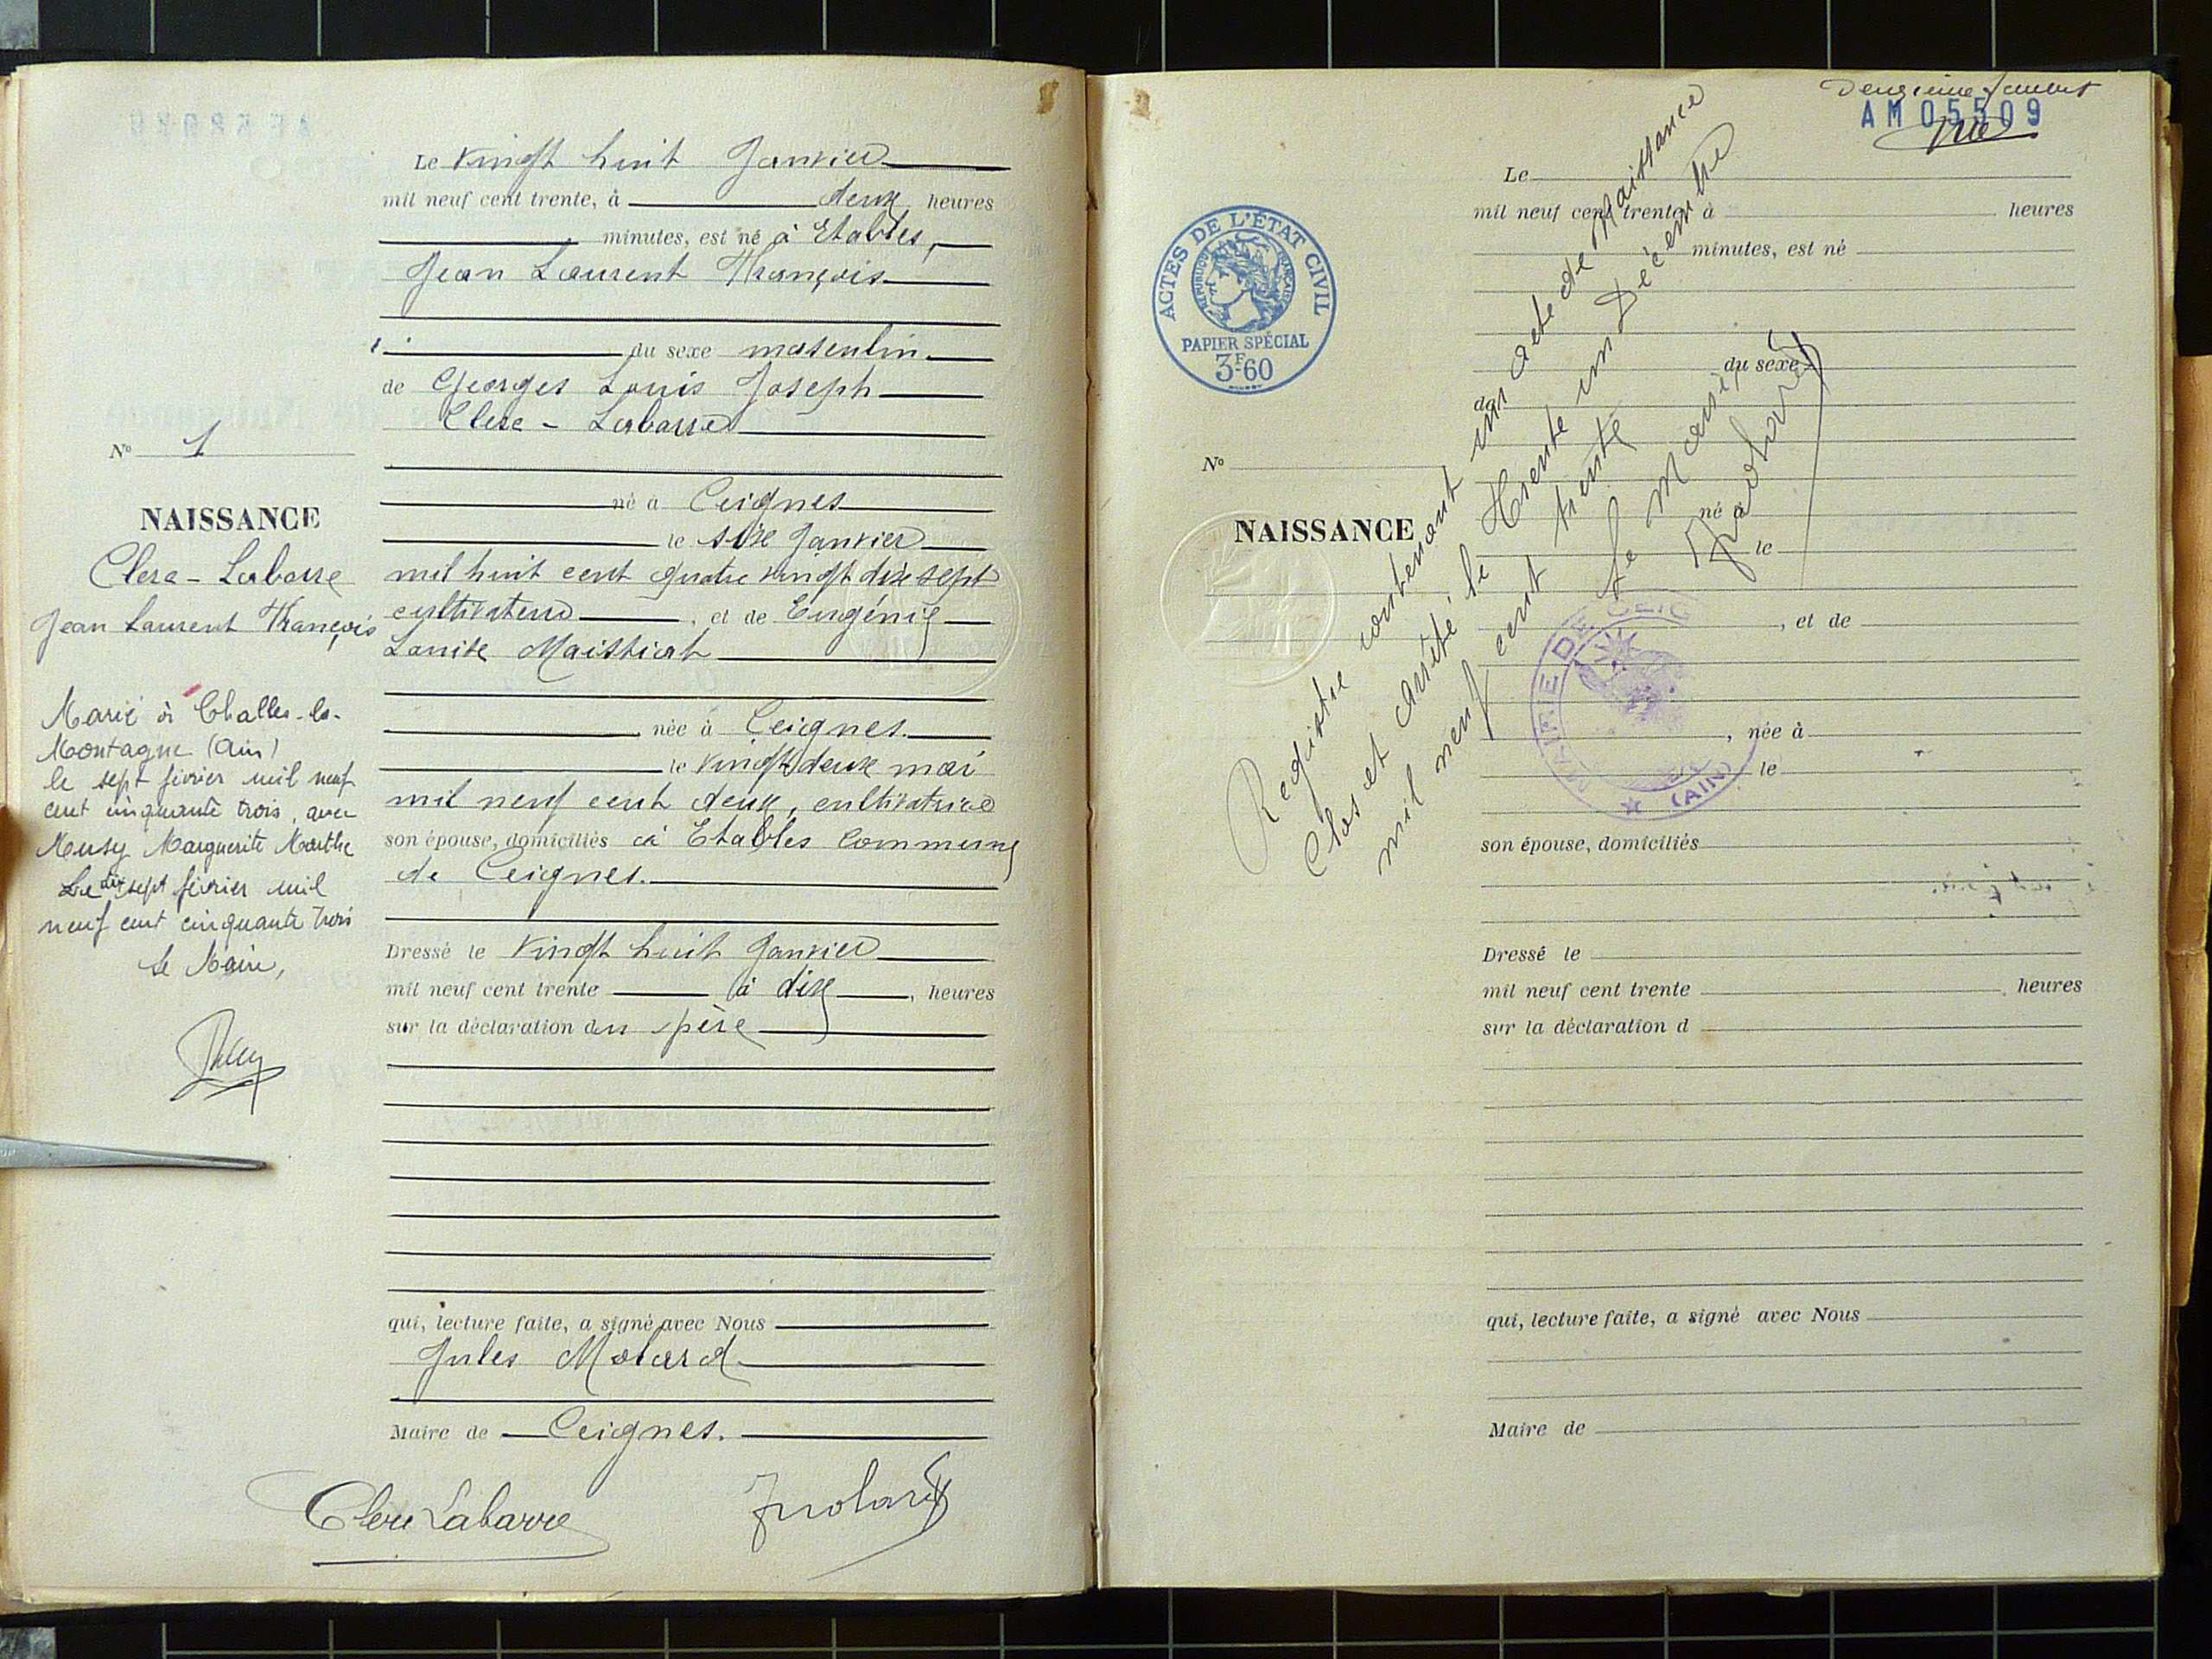 Le vingt huit Janvier
mil neuf cent trente, à deux heures
minutes, est né à Etables,
Jean Laurent François
du sexe masculin
de Georges Louis Joseph
Clerc - Labarre
né à Ceignes
le six Janvier
mil huit cent quatre vingt dix sept
cultivateur, et de Eugénie
Louise Maissiat
née à Ceignes.
le vingt deux mai
mil neuf cent deux, cultivatrice
son épouse, domiciliés à Etables commune
de Ceignes.
Dressé le vingt huit Janvier
mil neuf cent trente à dix, heures
sur la déclaration du père
qui, lecture faite, a signé avec Nous
Jules Molard
Maire de Ceignes.
Clerc Labarre
JMolard
No 1
NAISSANCE
Clerc - Labarre
Jean Laurent François
Marié à Challes-la-
Montagne (Ain)
le sept février mil neuf
cent cinquante trois, avec
Musy Marguerite Marthe
Le dix sept février mil
neuf cent cinquante trois
Le Maire,
Deuxième feuillet
AM 05509
ACTES DE L'ÉTAT CIVIL
RÉPUBLIQUE FRANÇAISE
PAPIER SPÉCIAL
3F60
No
NAISSANCE
Le
mil neuf cent trente, à heures
minutes, est né
du sexe
de
né à
le
, et de
, née à
le
son épouse, domiciliés
Dressé le
mil neuf cent trente heures
sur la déclaration d
qui, lecture faite, a signé avec Nous
Maire de
Registre contenant un acte de Naissance
Clos et arrêté le trente un Décembre
mil neuf cent trente
Le Maire,
JMolard
MAIRIE DE CEIG
(AIN)